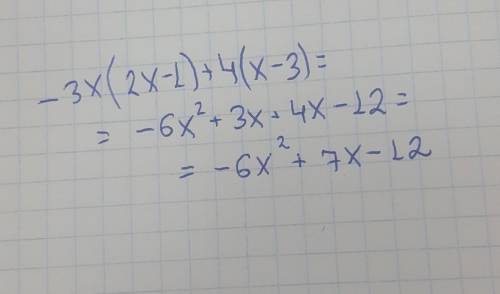 -3x(2x-1)+4(x-3)=
= -6x²+3x+4x-12=
= -6x²+7x-12